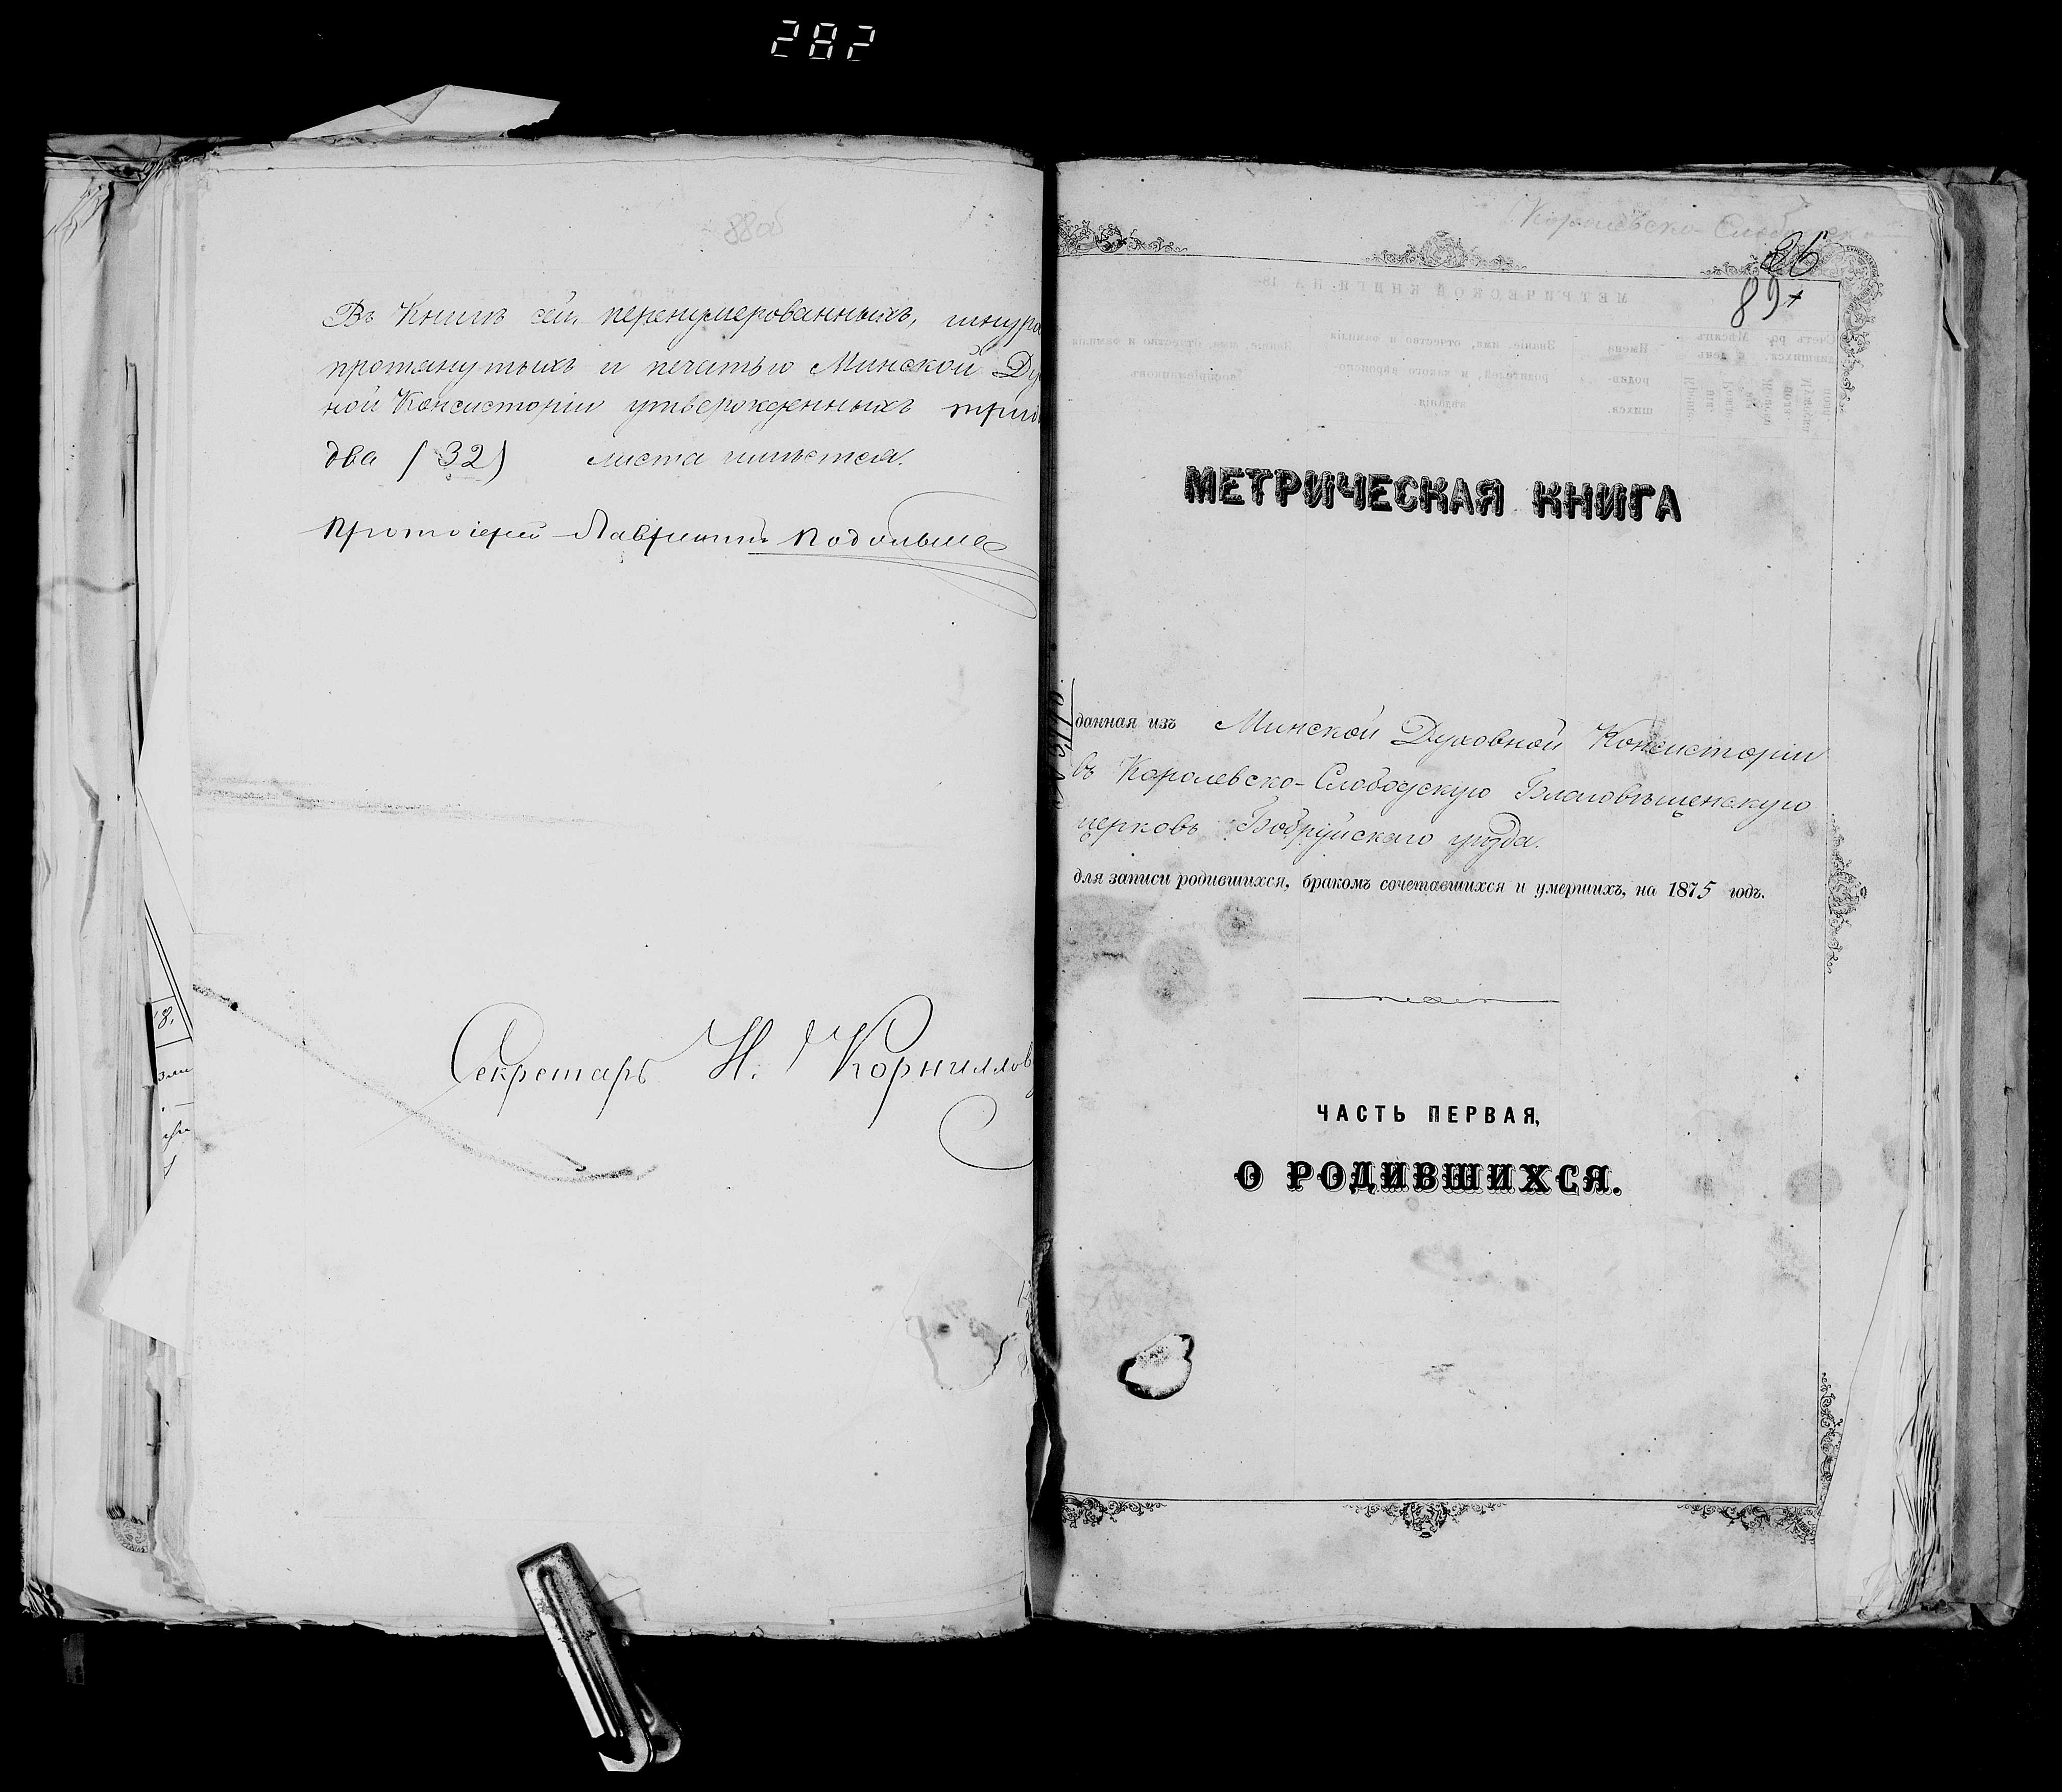 282
88об
Въ Книгѣ сей перенумерованныхъ, шнуро
протянутыхъ и печатью Минской Ду
ной Консисторіи утвержденныхъ трид
два (32) листа имѣется.
Протоіерей Лаврентій Подольше
Секретарь Н. Корниллов
Королевско-Слободско
26
89
МЕТРИЧЕСКАЯ КНИГА
данная изъ Минской Духовной Консисторіи
въ Королевско-Слободскую Благовѣщенскую
церковь Бобруйскаго уѣзда.
для записи родившихся, бракомъ сочетавшихся и умершихъ, на 1875 годъ.
ЧАСТЬ ПЕРВАЯ,
О РОДИВШИХСЯ.